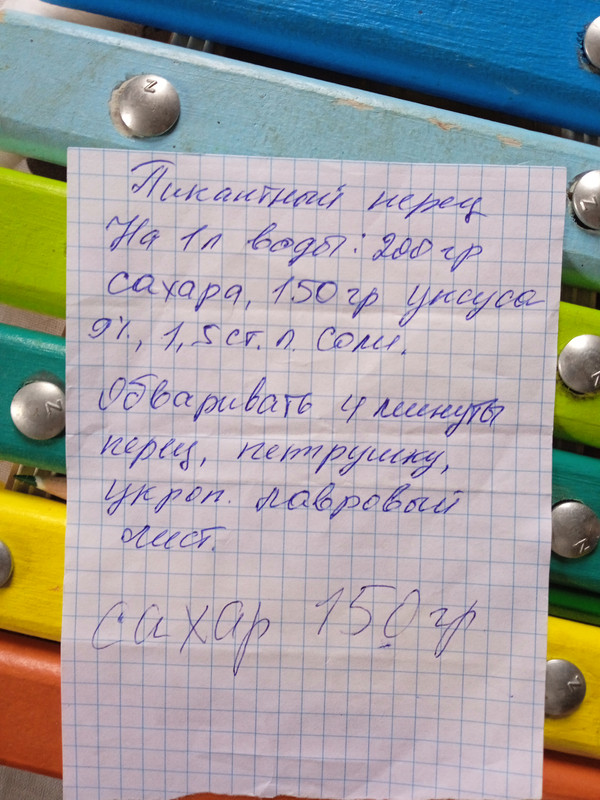 Пикантный перец
На 1л воды: 200 гр
сахара, 150 гр уксуса
9%, 1,5 ст. л. соли.
Обваривать 4 минуты
перец, петрушку,
укроп. лавровый
лист.
сахар 150 гр